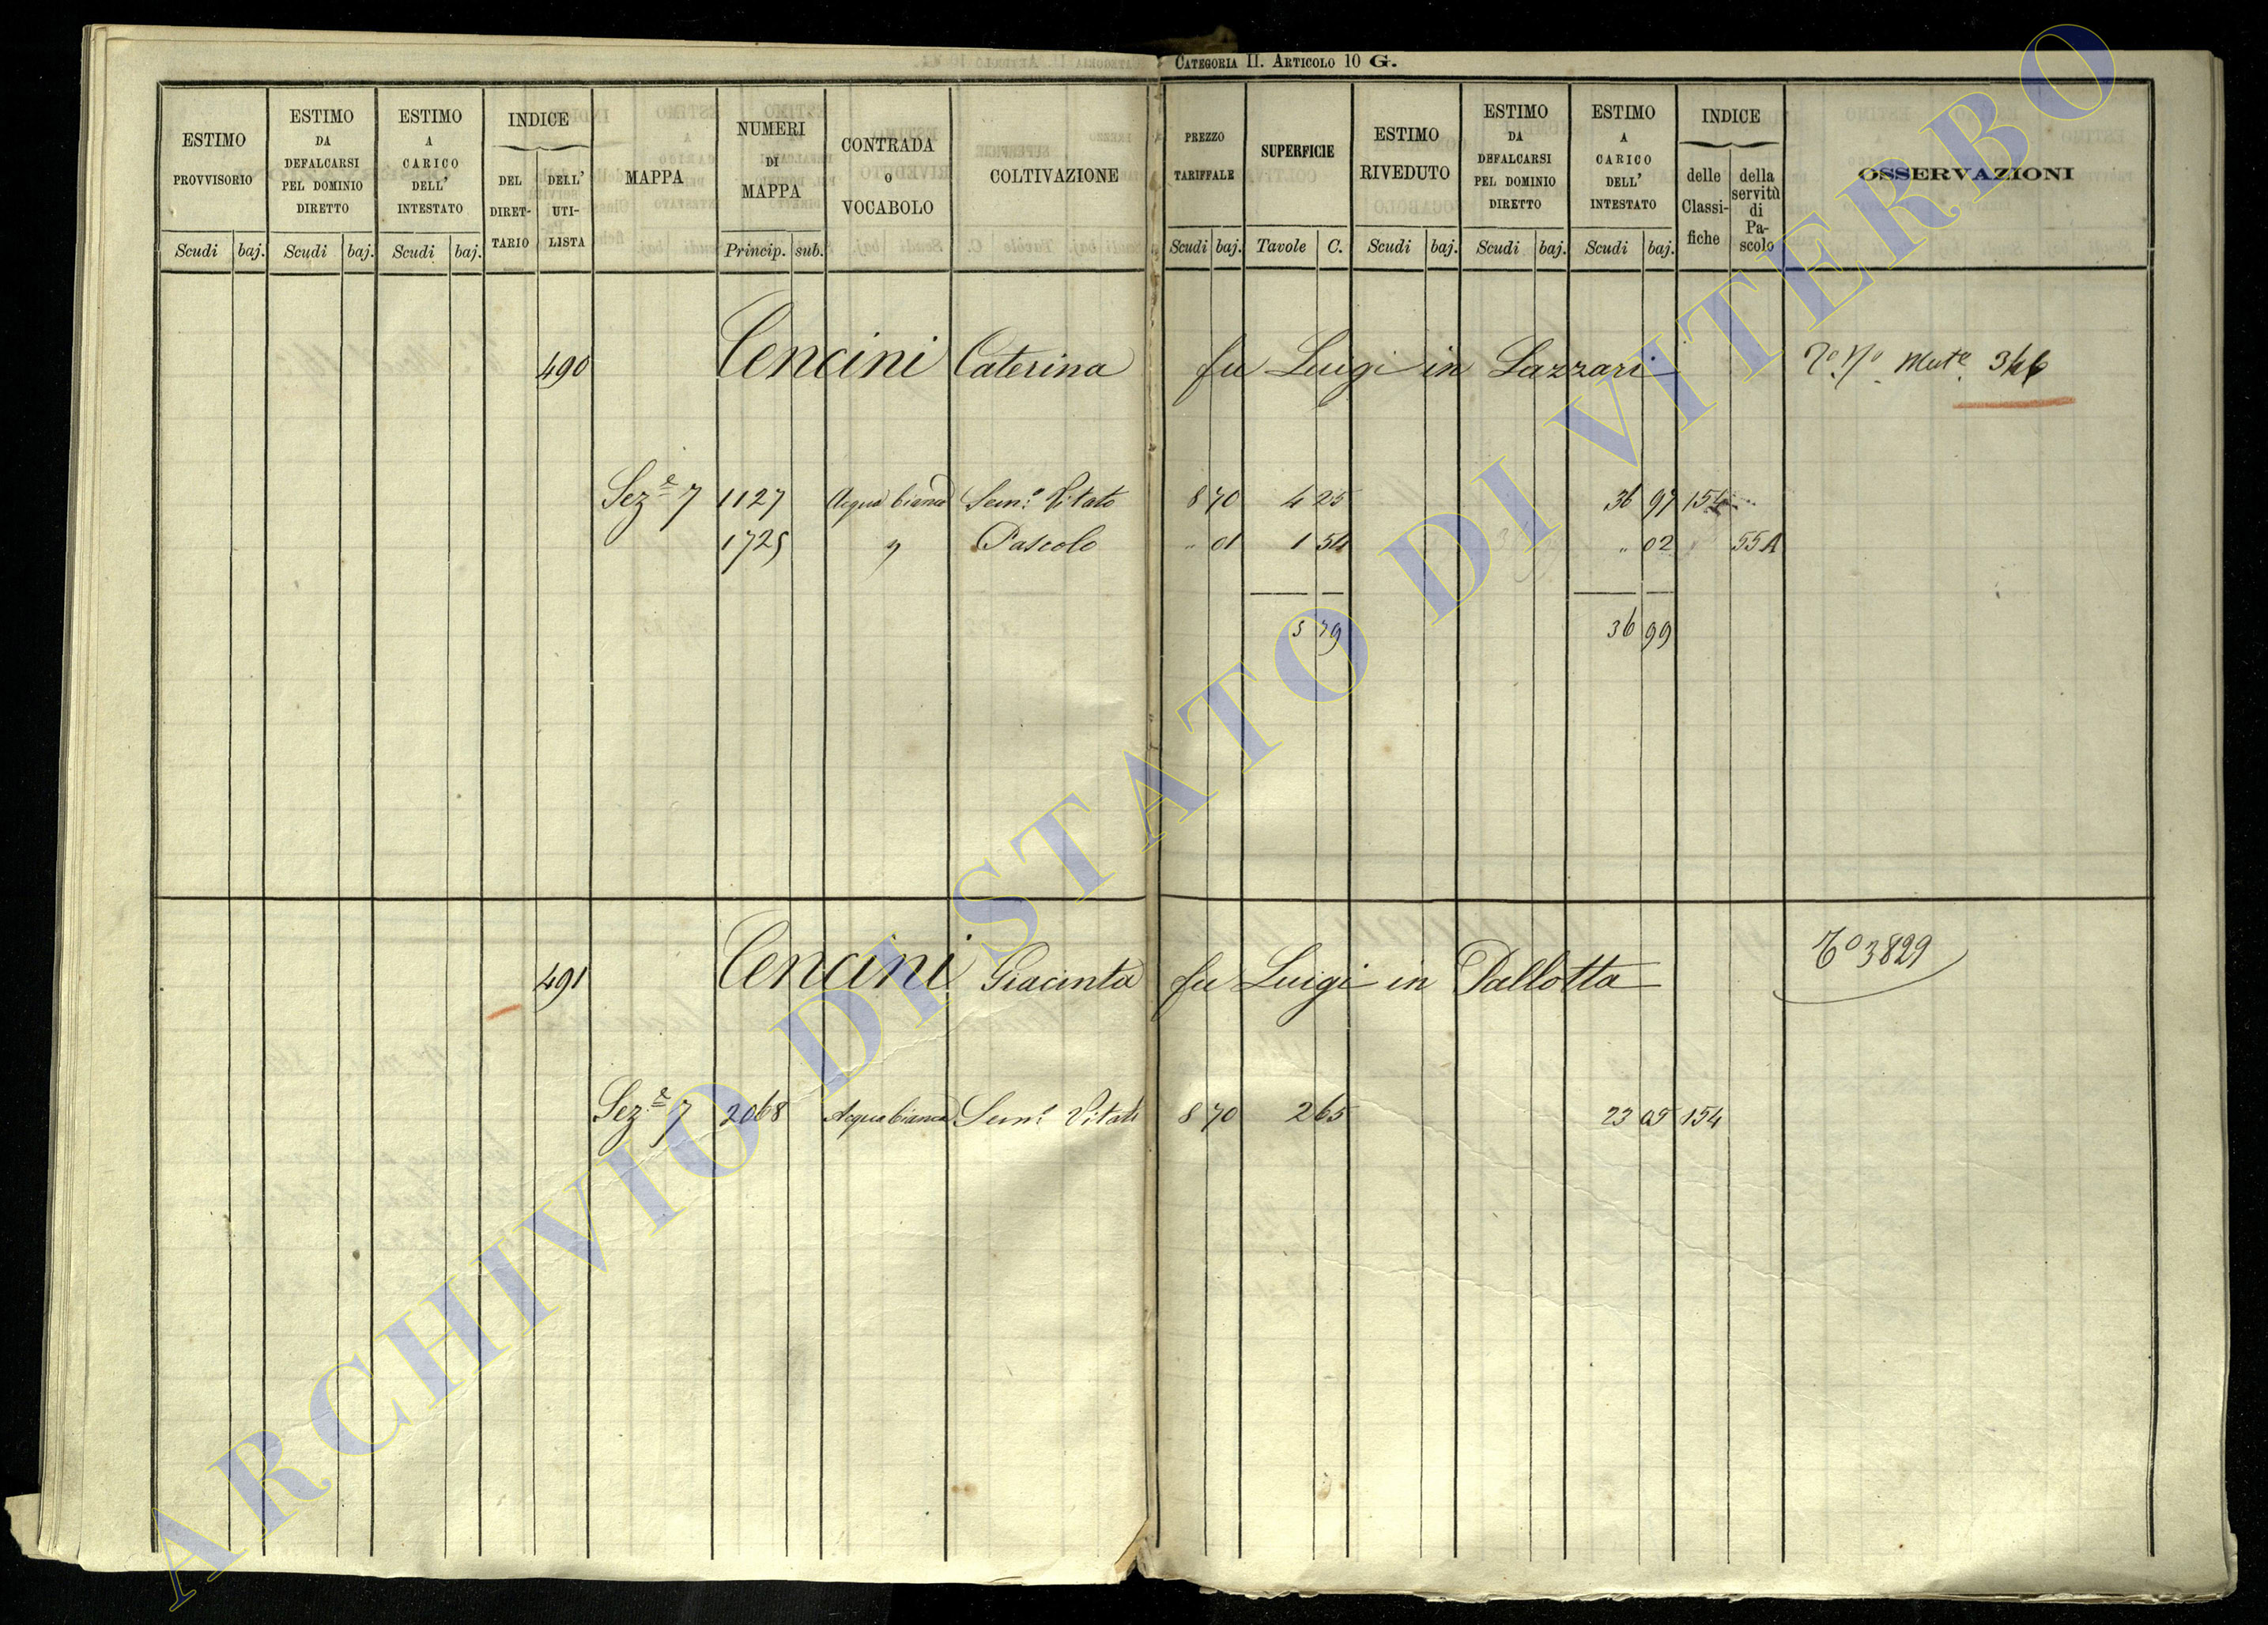 CATEGORIA II. ARTICOLO 10 G.
ESTIMO PROVVISORIO
Scudi baj.
ESTIMO DA DEFALCARSI PEL DOMINIO DIRETTO
Scudi baj.
ESTIMO A CARICO DELL' INTESTATO
Scudi baj.
INDICE
DEL DIRET-TARIO
DELL' UTI-LISTA
MAPPA
NUMERI DI MAPPA
Princip. sub.
CONTRADA O VOCABOLO
COLTIVAZIONE
PREZZO TARIFFALE
Scudi baj.
SUPERFICIE
Tavole C.
ESTIMO RIVEDUTO
Scudi baj.
ESTIMO DA DEFALCARSI PEL DOMINIO DIRETTO
Scudi baj.
ESTIMO A CARICO DELL' INTESTATO
Scudi baj.
INDICE
delle Classi-fiche
della servitù di Pa-scolo
OSSERVAZIONI
490 Cencini Caterina fu Luigi in Lazzari 346
Sez.e 7 1127 Acqua bianca Sem.o Vitato 8 70 4 25 36 97 154
1725 " Pascolo " 01 1 54 " 02 55A
5 79 36 99
491 Cencini Giacinta fu Luigi in Pallotta 3829
Sez.e 7 2068 Acqua bianca Sem.o Vitato 8 70 2 65 23 05 154
ARCHIVIO DI STATO DI VITERBO